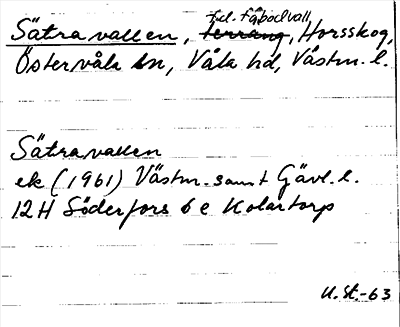 Sätravallen, f.d. fäbodvall, Horsskog,
Östervåla sn, Våla hd, Västm. l.
Sätravallen
ek (1961) Västm. samt Gävl. l.
12H Söderfors 6 e Kolartorp
U.St.-63